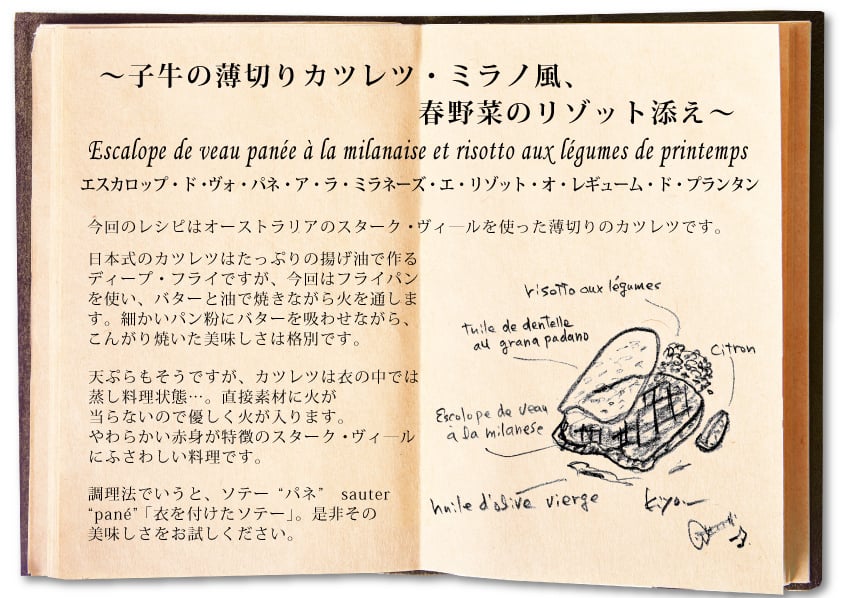 ～子牛の薄切りカツレツ・ミラノ風、
春野菜のリゾット添え～
Escalope de veau panée à la milanaise et risotto aux légumes de printemps
エスカロップ・ド・ヴォ・パネ・ア・ラ・ミラネーズ・エ・リゾット・オ・レギューム・ド・プランタン
今回のレシピはオーストラリアのスターク・ヴィールを使った薄切りのカツレツです。
日本式のカツレツはたっぷりの揚げ油で作る
ディープ・フライですが、今回はフライパン
を使い、バターと油で焼きながら火を通しま
す。細かいパン粉にバターを吸わせながら、
こんがり焼いた美味しさは格別です。
天ぷらもそうですが、カツレツは衣の中では
蒸し料理状態…。直接素材に火が
当らないので優しく火が入ります。
やわらかい赤身が特徴のスターク・ヴィール
にふさわしい料理です。
調理法でいうと、ソテー “パネ” sauter
“pané”「衣を付けたソテー」。是非その
美味しさをお試しください。
risotto aux légumes
tuile de dentelle
au grana padano
citron
Escalope de veau
à la milanese
huile d'olive vierge